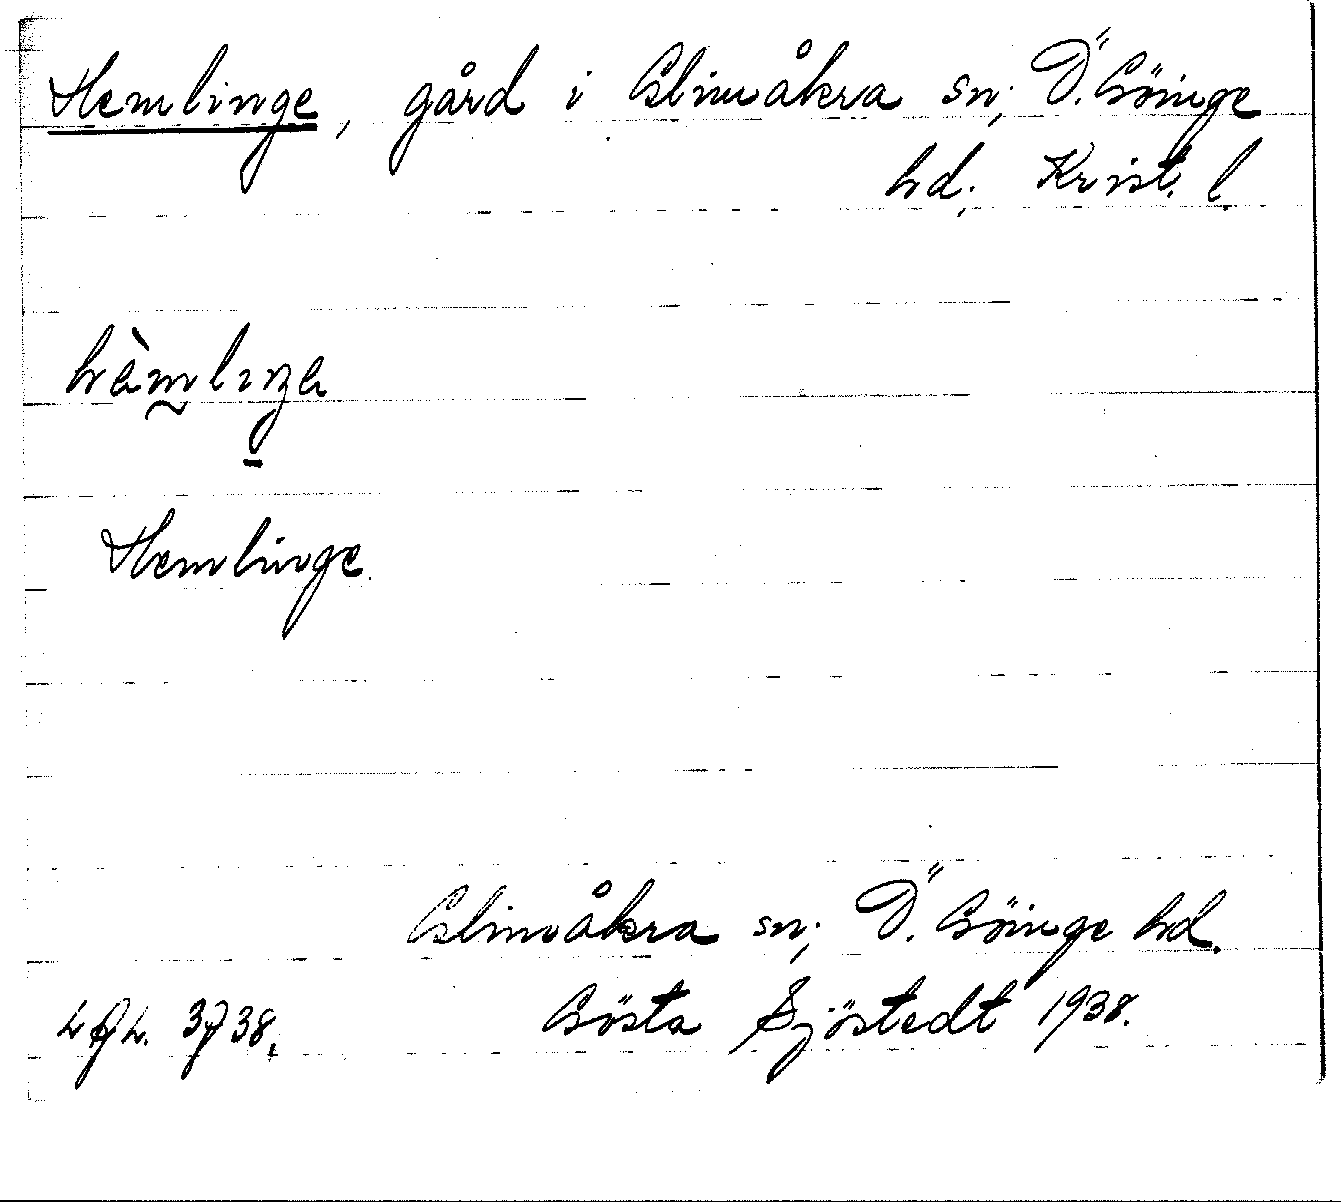 Hemlinge, gård i Glimåkra sn; Ö. Göinge
hd; Krist. l.
hæ̀mlɪŋa
Hemlinge.
Glimåkra sn; Ö. Göinge hd.
Gösta Sjöstedt 1938.